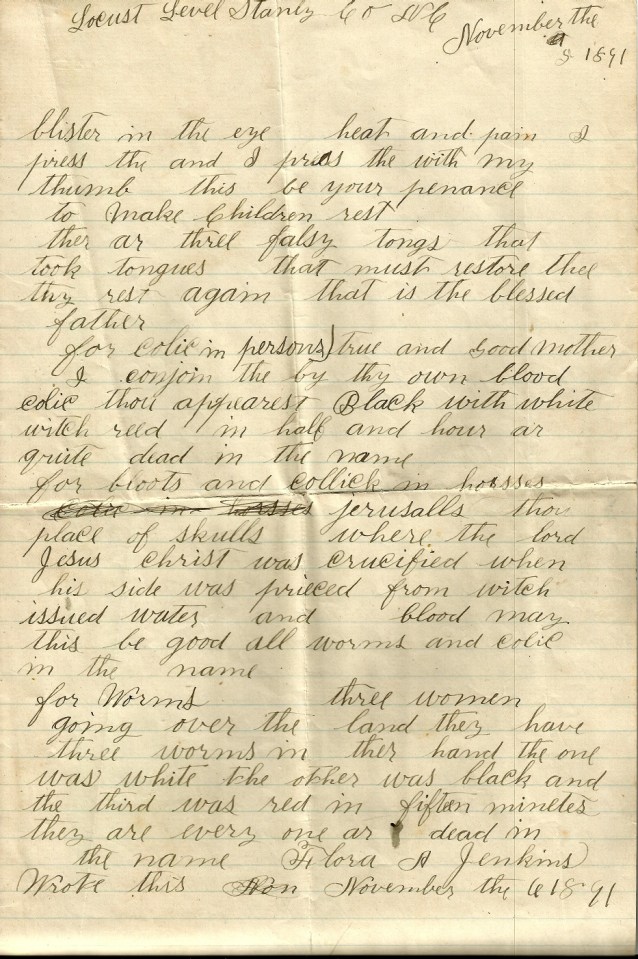 Locust Level Stanly Co NC
November the
1891
blister in the eye heat and pain I
press the and I press the with my
thumb this be your penance
to Make Children rest
ther ar three falsy tongs that
took tongues that must restore thee
thy rest again that is the blessed
father
for colic in persons) true and good mother
I conjoin the by thy own blood
colic thou appearest Black with white
witch reed in half and hour ar
quite dead in the name
for bloots and collick in horsses
colic in horsses jerusalls thou
place of skulls where the lord
Jesus christ was crucified when
his side was prieced from witch
issued water and blood may
this be good all worms and colic
in the name
for Worms three women
going over the land they have
three worms in ther hand the one
was white the other was black and
the third was red in fiften minetes
they are every one ar dead in
the name Flora A Jenkins
Wrote this November the 6 18 91